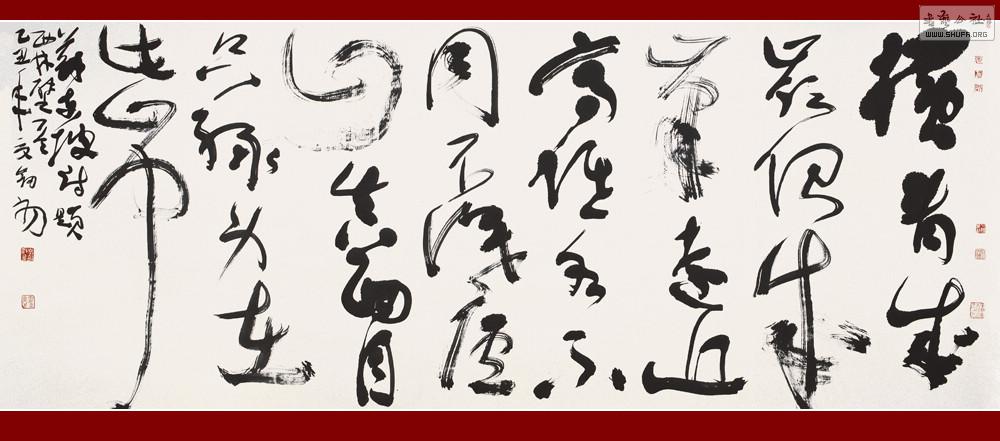 横看成
岭侧成
峰远近
高低各不
同不识庐
山真面目
只缘身在
此山中
苏东坡诗题
西林壁
乙丑年
书法公社
WWW.SHUFA.ORG